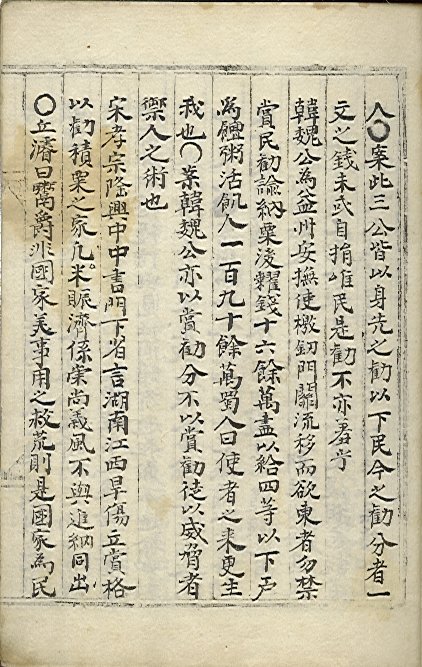 人〇案此三公皆以身先之勸以下民今之勸分者一
文之錢未或自捐唯民是勸不亦羞乎
韓魏公為益州安撫使檄釰門關流移而欲東者勿禁
賞民勸諭納粟後糶錢十六餘萬盡以給四等以下戶
為饘粥活飢人一百九十餘萬蜀人曰使者之来更生
我也〇案韓魏公亦以賞勸分不以賞勸徒以威脅者
禦人之術也
宋孝宗隆興中中書門下省言湖南江西旱傷立賞格
以勸積粟之家凡米賑濟係崇尚義風不與進納同出
〇丘濬曰鬻爵非國家美事用之救荒則是國家為民